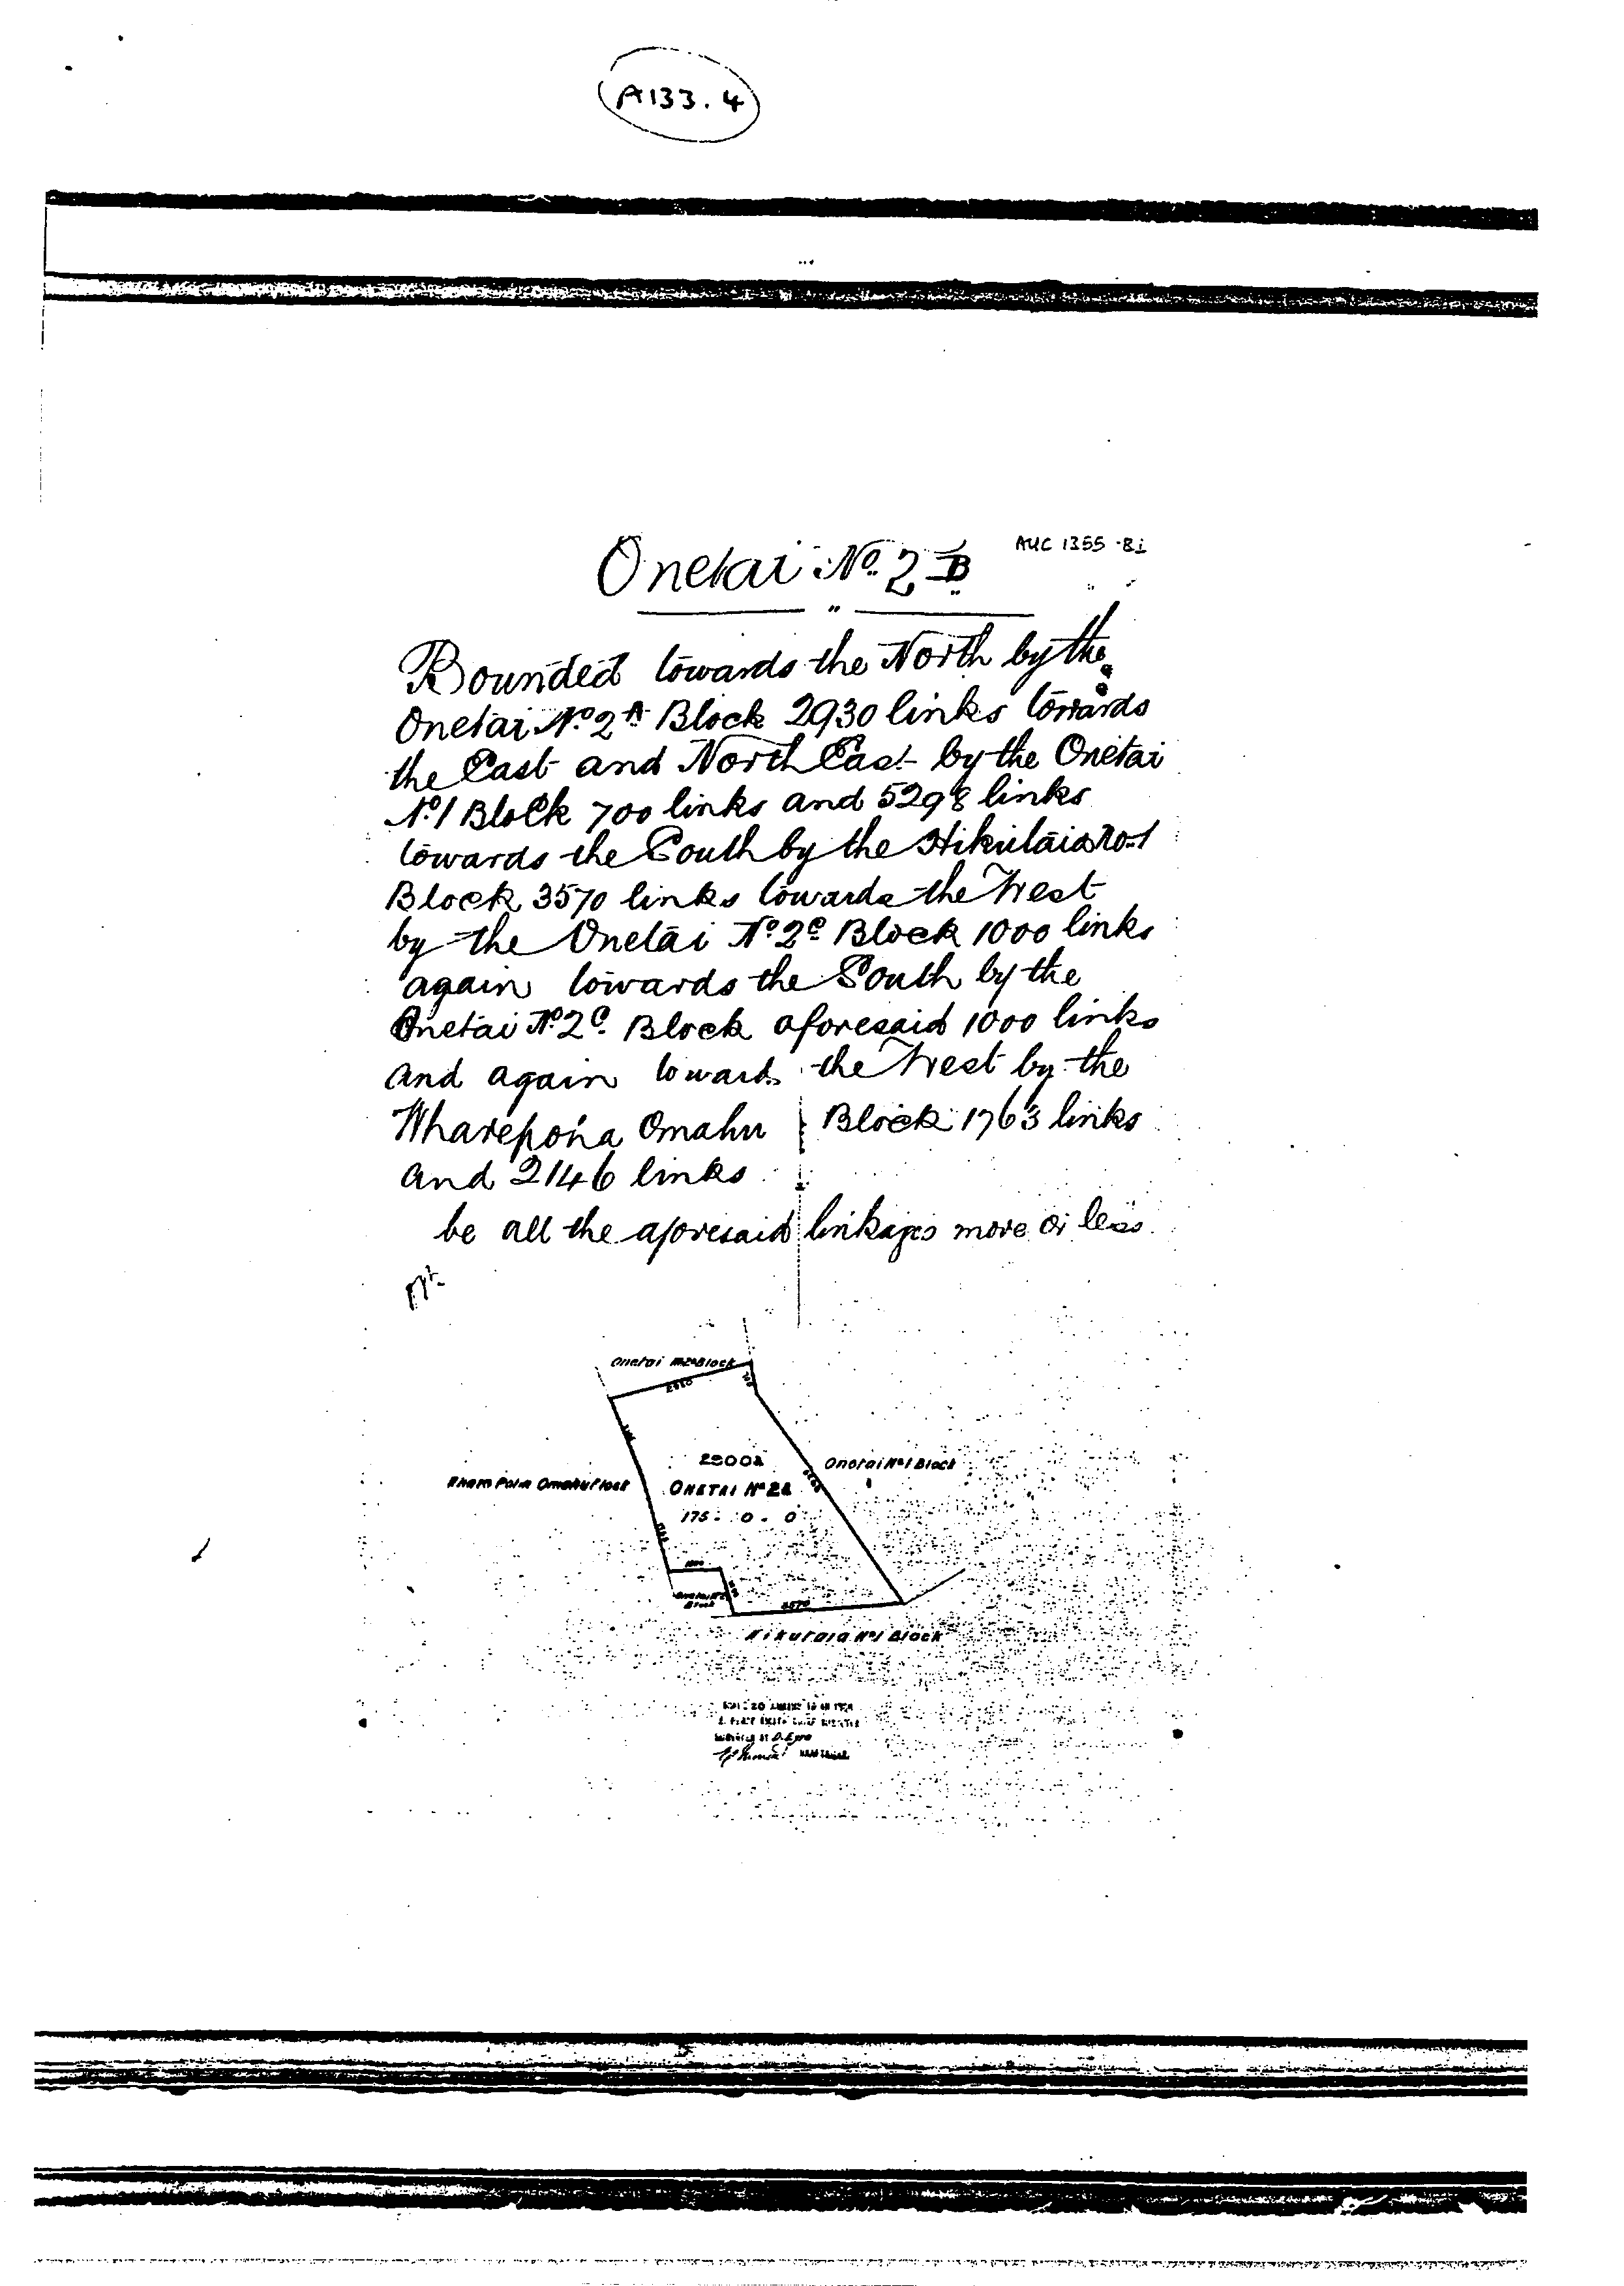 A133.4
Onetai No. 2 B
AUC 1355 -Bi
Bounded towards the North by the
Onetai No. 2A Block 2930 links towards
the East and North East by the Onetai
No. 1 Block 700 links and 5298 links
towards the South by the Hikutaia No 1
Block 3570 links towards the West
by the Onetai No. 2C Block 1000 links
again towards the South by the
Onetai No. 2C. Block aforesaid 1000 links
and again towards the West by the
Wharepoha Omahu Block 1763 links
and 2146 links
be all the aforesaid linkages more or less
Onetai No 2A Block
2930
Onetai No 1 Block
ONETAI No 2B
175 . 0 . 0
Omahu Block
1000
Block
3570
Hikutaia No 1 Block